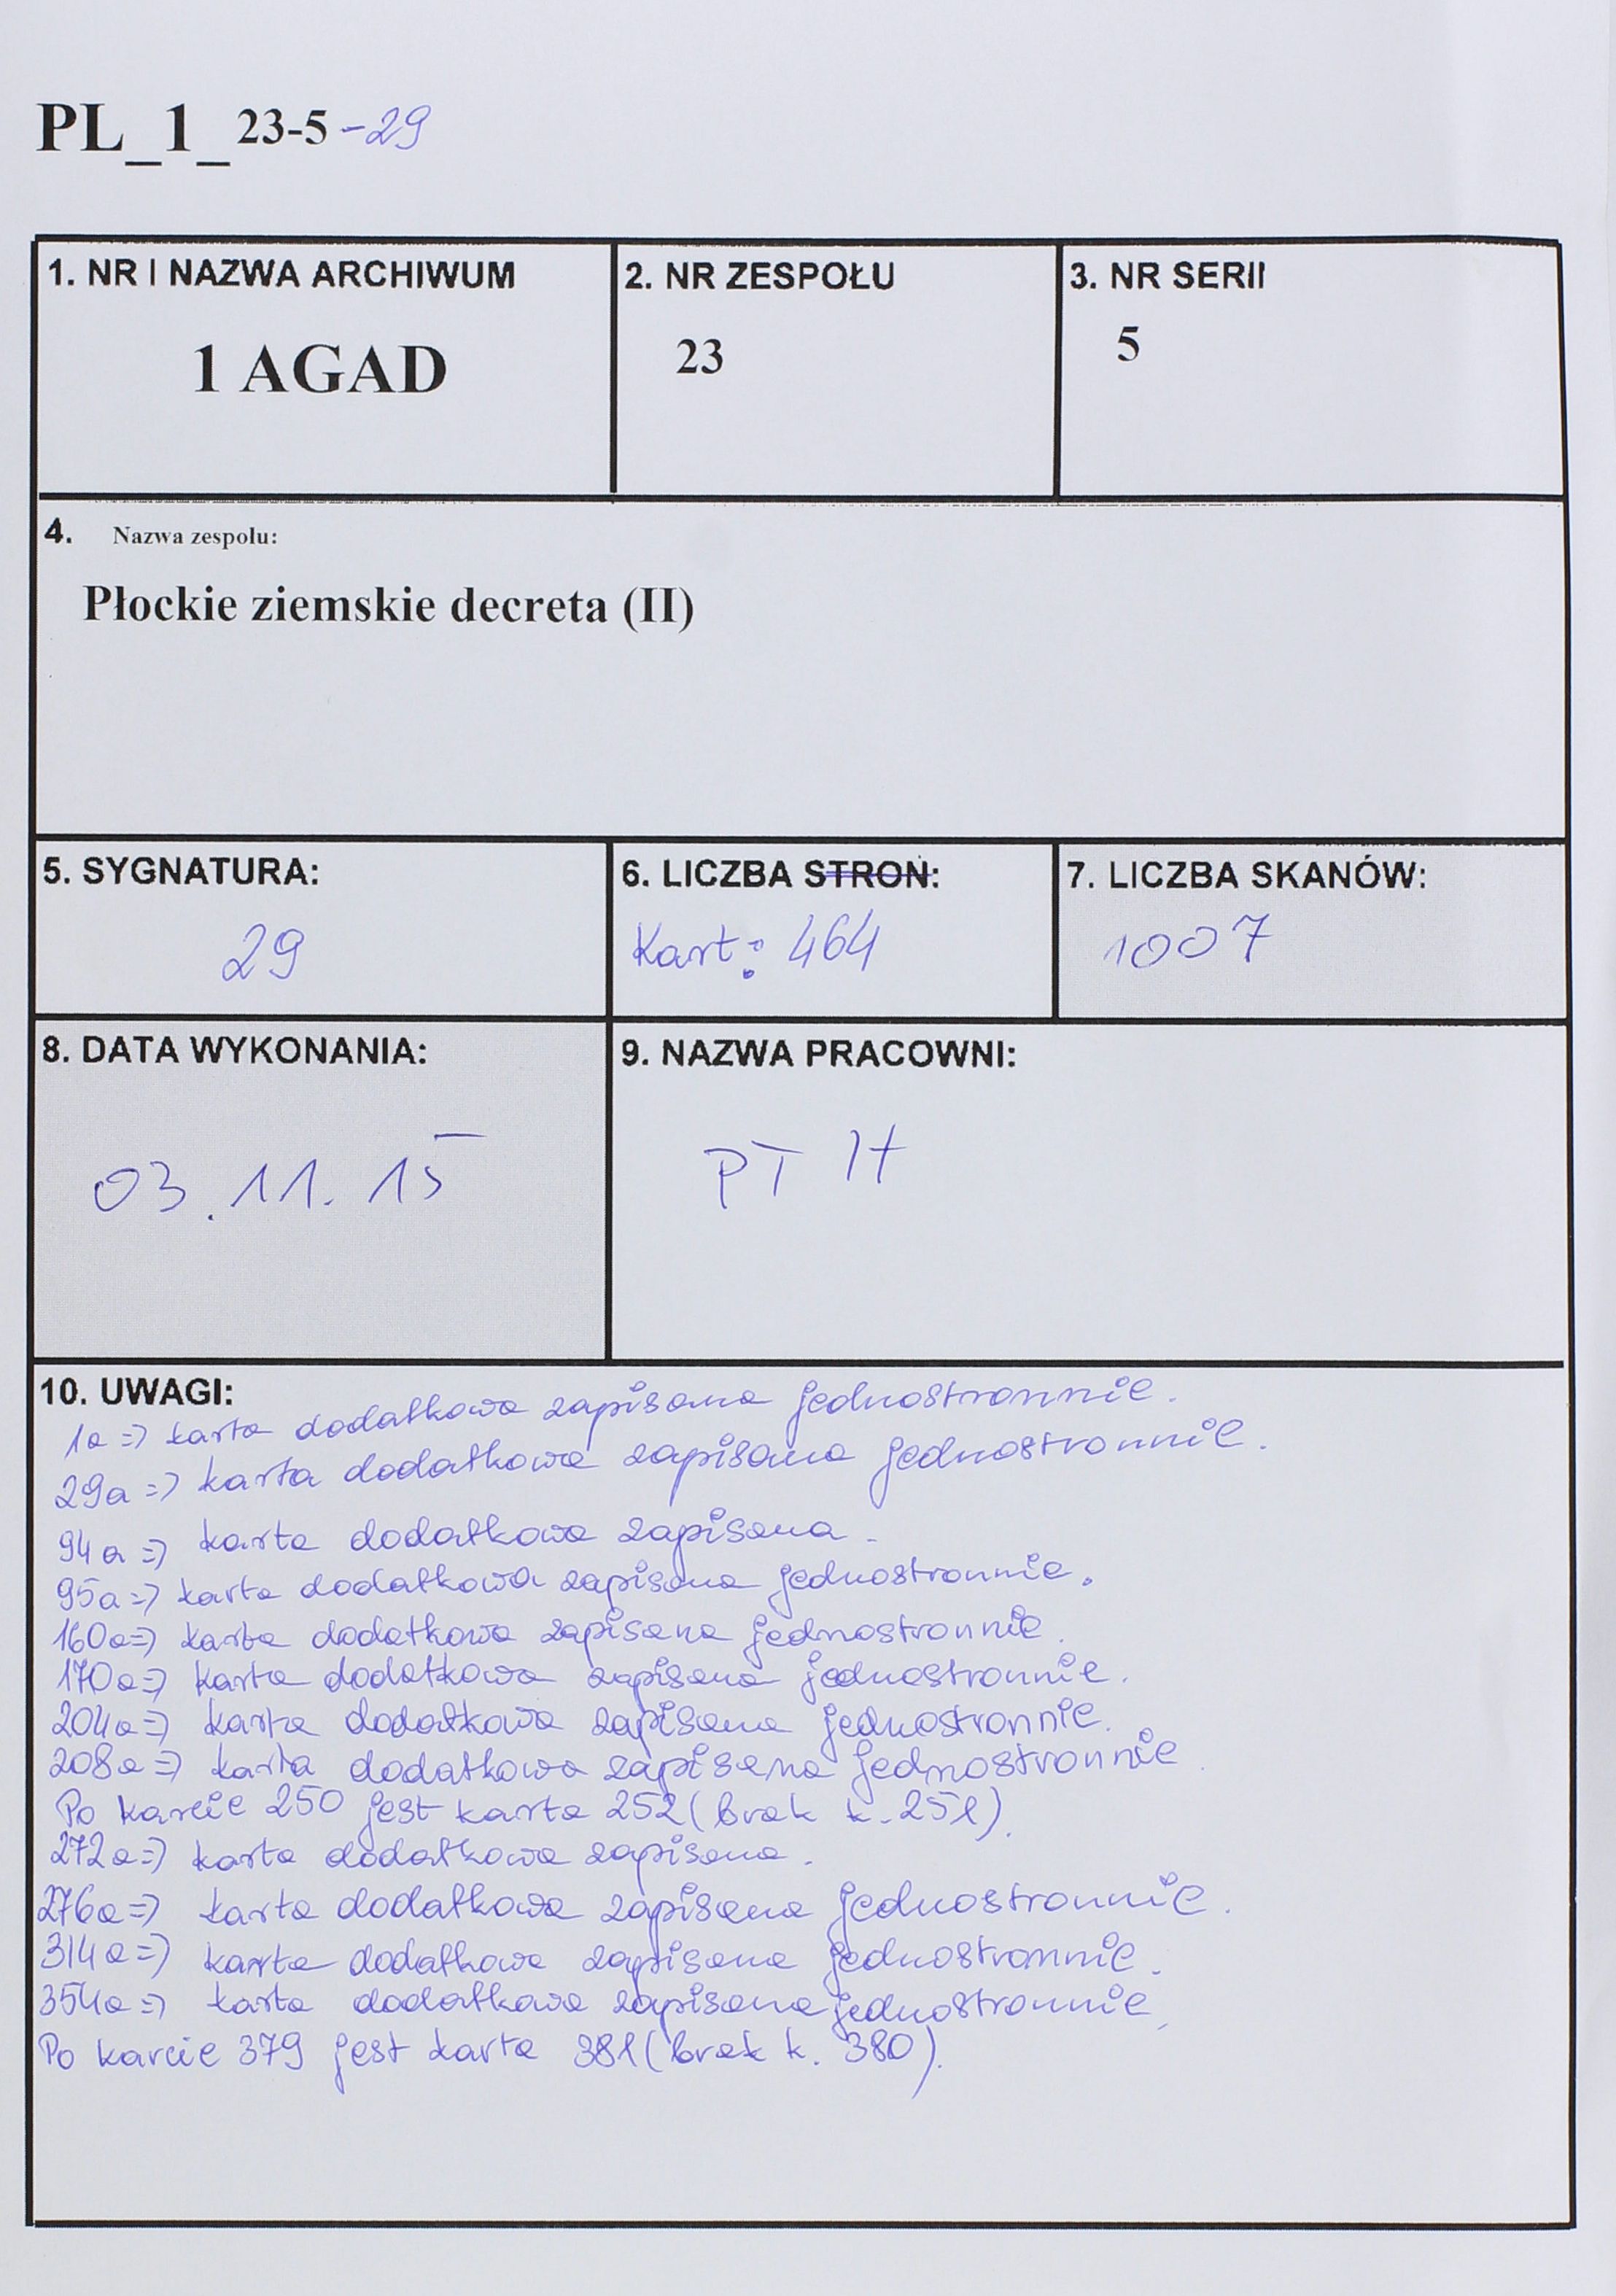 PL_1_ 23-5 -29
1. NR I NAZWA ARCHIWUM
1 AGAD
2. NR ZESPOŁU
23
3. NR SERII
5
4. Nazwa zespołu:
Płockie ziemskie decreta (II)
5. SYGNATURA:
29
6. LICZBA STRON:
Kart: 464
7. LICZBA SKANÓW:
1007
8. DATA WYKONANIA:
03.11.15
9. NAZWA PRACOWNI:
PT
10. UWAGI:
1a => karta dodatkowa zapisana jednostronnie.
29a => karta dodatkowa zapisana jednostronnie.
94a => karta dodatkowa zapisana.
95a => karta dodatkowa zapisana jednostronnie.
160a => karta dodatkowa zapisana jednostronnie.
170a => karta dodatkowa zapisana jednostronnie.
204a => karta dodatkowa zapisana jednostronnie.
208a => karta dodatkowa zapisana jednostronnie.
Po karcie 250 jest karta 252 (brak k. 251).
272a => karta dodatkowa zapisana.
276a => karta dodatkowa zapisana jednostronnie.
314a => karta dodatkowa zapisana jednostronnie.
354a => karta dodatkowa zapisana jednostronnie.
Po karcie 379 jest karta 381 (brak k. 380).